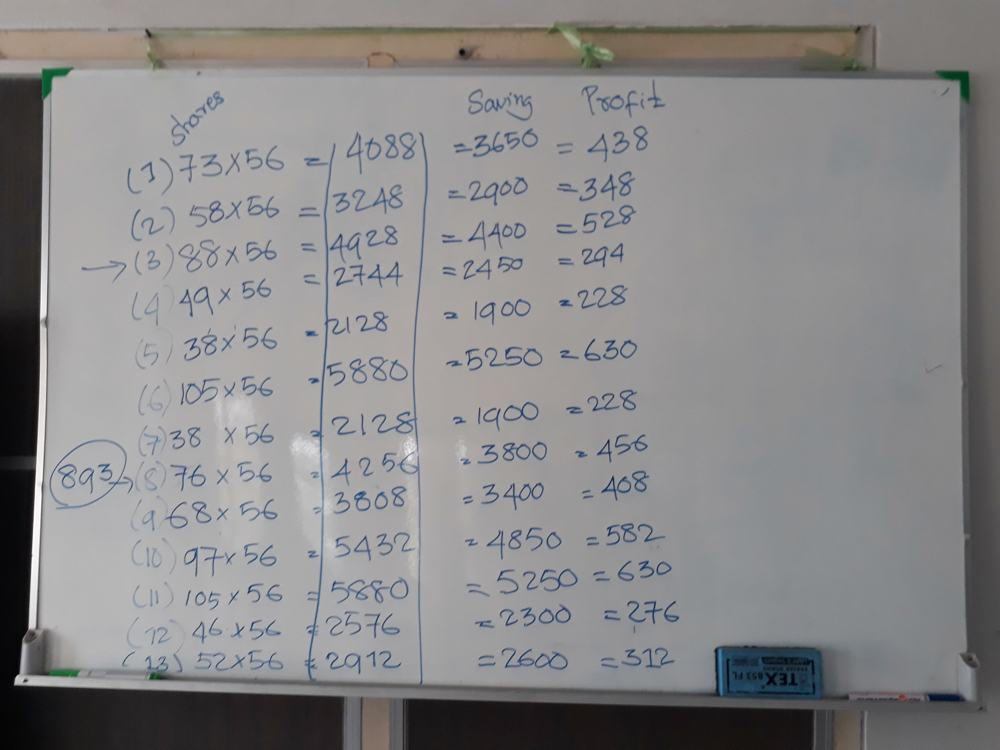 shares Saving Profit
(1) 73×56 = 4088 =3650 = 438
(2) 58×56 = 3248 =2900 =348
→ (3) 88×56 = 4928 =4400 =528
(4) 49×56 = 2744 =2450 =294
(5) 38×56 =2128 =1900 =228
(6) 105×56 =5880 =5250 =630
(7) 38 ×56 =2128 =1900 =228
893 → (8) 76×56 =4256 =3800 =456
(9) 68×56 =3808 =3400 =408
(10) 97×56 =5432 =4850 =582
(11) 105×56 =5880 =5250 =630
(12) 46×56 =2576 =2300 =276
(13) 52×56 =2912 =2600 =312
TEX 853 FL